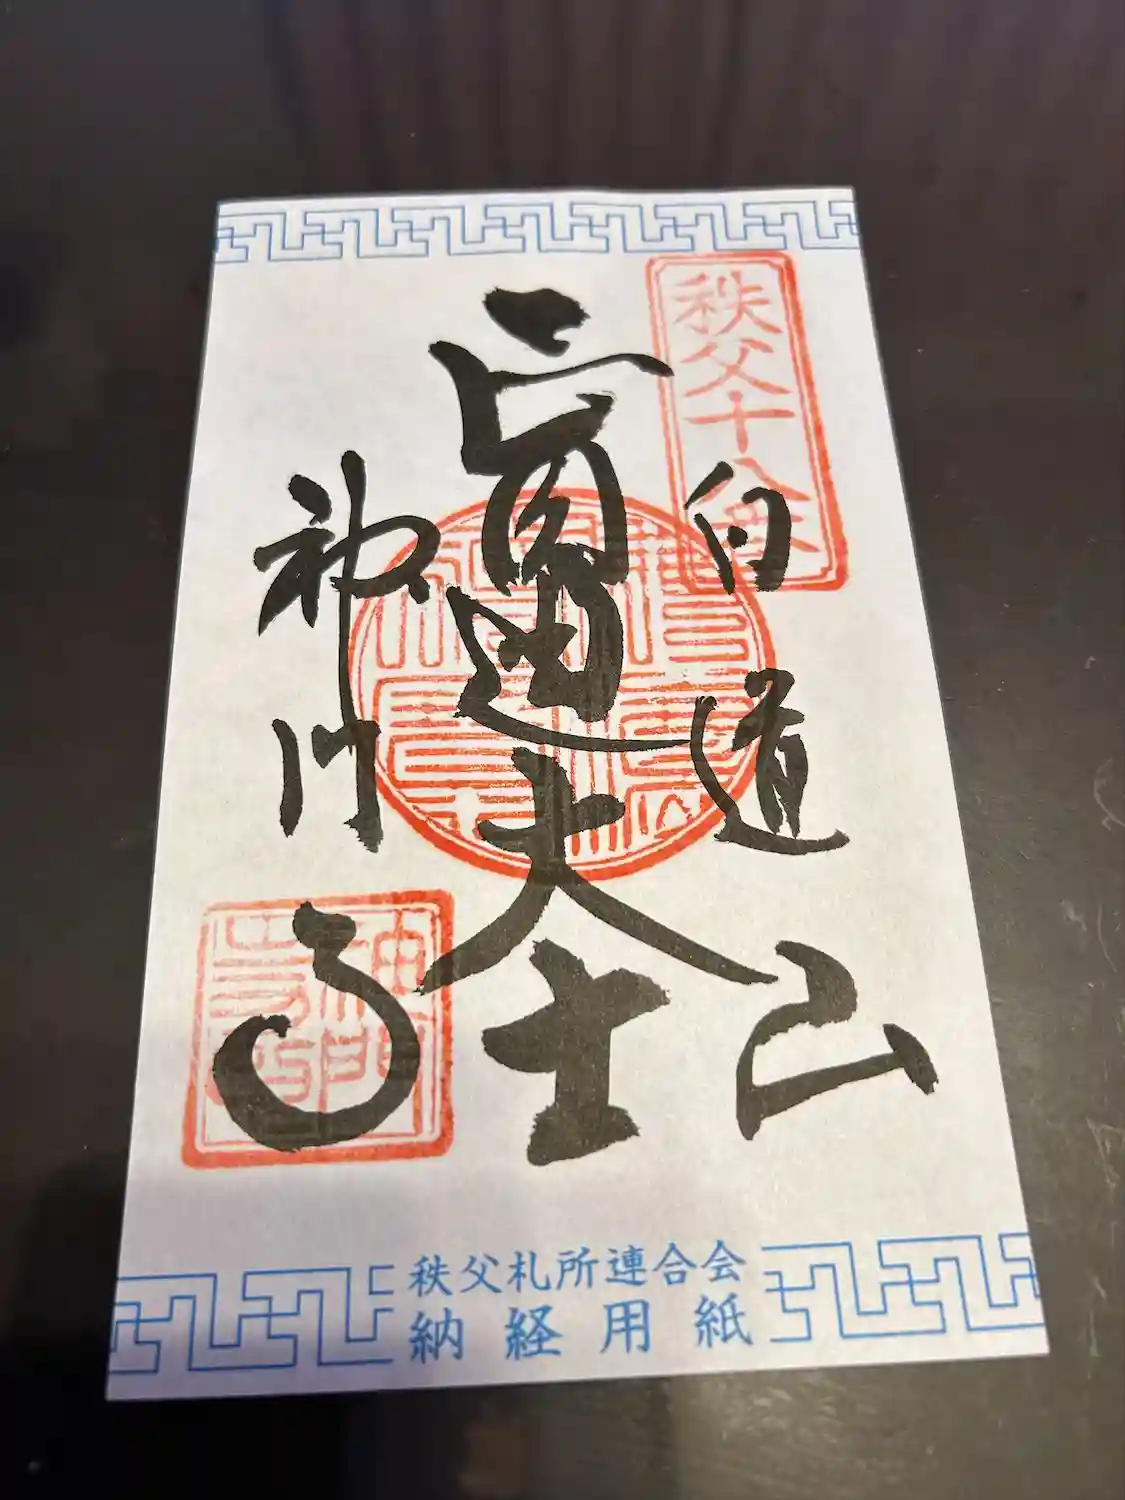 秩父十八番
白道山
圓通大士
神門寺
神門寺印
秩父札所連合会
納経用紙